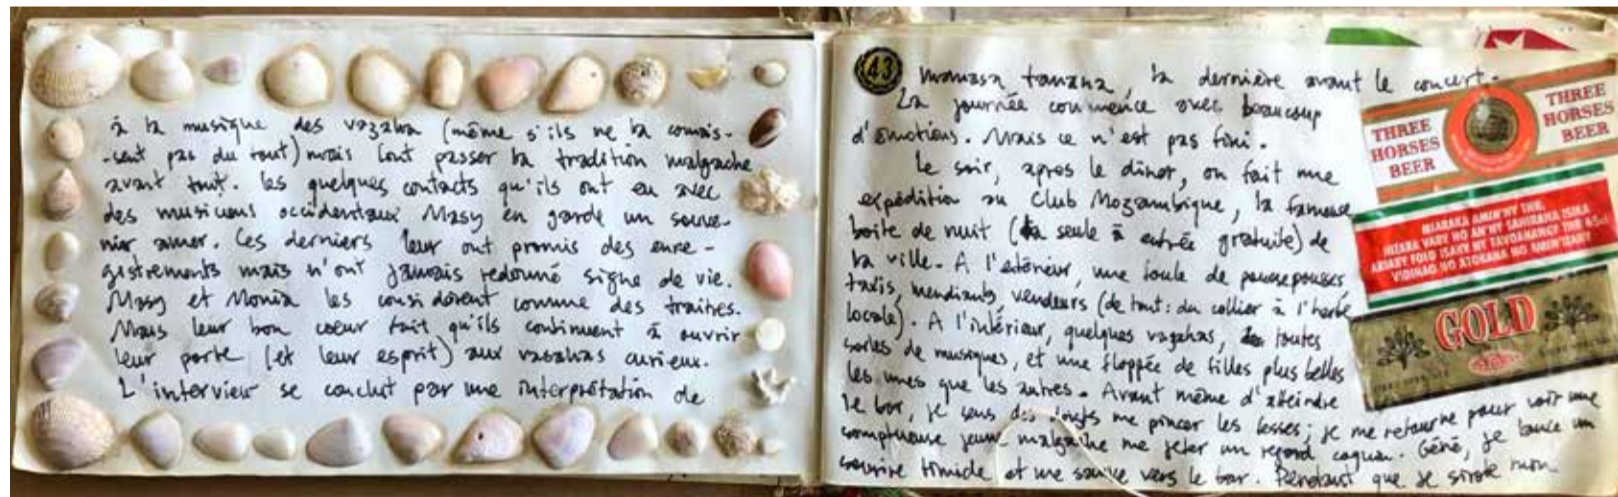 à la musique des vazaha (même s'ils ne la connais-
-sent pas du tout) mais font passer la tradition malgache
avant tout. Les quelques contacts qu'ils ont eu avec
des musiciens occidentaux Masy en garde un souve-
nir amer. Ces derniers leur ont promis des enre-
gistrements mais n'ont jamais redonné signe de vie.
Masy et Monia les considèrent comme des traitres.
Mais leur bon coeur fait qu'ils continuent à ouvrir
leur porte (et leur esprit) aux vazahas curieux.
L'interview se conclut par une interprétation de
43
Manasa tanana, la dernière avant le concert.
La journée commence avec beaucoup
d'émotions. Mais ce n'est pas fini.
Le soir, apres le diner, on fait une
expédition au Club Mozambique, la fameuse
boite de nuit (la seule à entrée gratuite) de
la ville. A l'extérieur, une foule de poussepousses
taxis, mendiants, vendeurs (de tout: du collier à l'herbe
locale). A l'intérieur, quelques vazahas, toutes
sortes de musiques, et une floppée de filles plus belles
les unes que les autres. Avant même d'atteindre
le bar, je sens des doigts me pincer les fesses; je me retourne pour voir une
somptueuse jeune malgache me jeter un regard coquin. Géné, je lance un
sourire timide et me sauve vers le bar. Pendant que je sirote mon
THREE
HORSES
BEER
THREE
HORSES
BEER
MIARAKA AMIN'NY THB,
GOLD